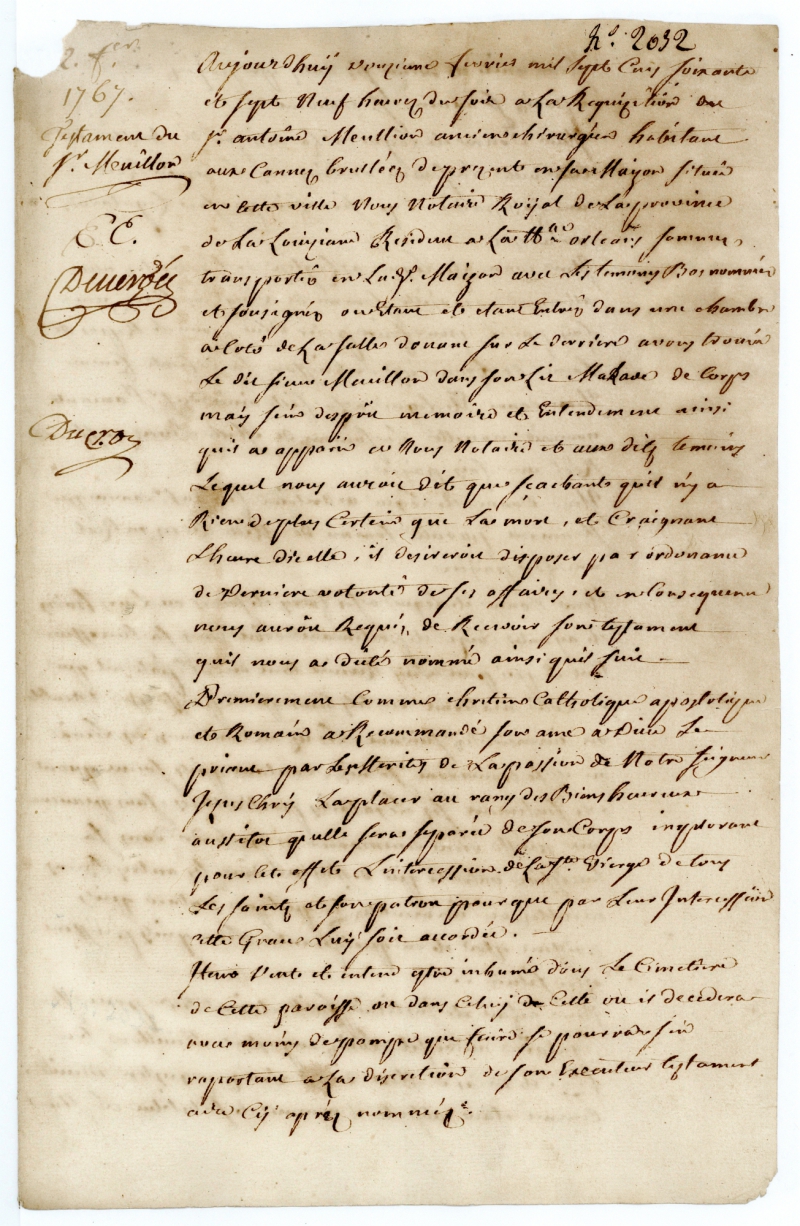 No. 2032
2. fer.
1767.
Testament du
Sr. Meuillon
Aujourdhuÿ douziane fevrier mil sept Cens soixante
et sept Neuf heures du soir a La Requisition du
Sr. antoine Meullion ancien chirurgien habitant
aux Cannes bruslées de present en sa Maison située
en Cette ville Nous Notaire Roÿal de La province
de La Louisiane Resident a La Nlle orleans sommes
transportés en Lad. Maison avec Les temoins Bas nommés
et sousignés ou Etant et etant Entrés dans une chambre
a Coté de La salle donant sur Le derriere avons trouvé
Le dit sieur Meuillon dans son Lit Malade de Corps
mais sein desprit memoire et Entendement ainsi
quil a apparû a Nous Notaire et aux dits temoins
Lequel nous auroit dit que scachant quil nÿ a
Rien de plus Certein que La mort, et Craignant
Lheure dicelle, il desireroit disposer par ordonance
de Derniere volonté de ses affaires, et en Consequence
nous auroit Requis, de Recevoir son testament
quil nous a dicté nommé ainsi quil suit
Premierement Comme chretien Catholique apostolique
et Romain a Recommandé son ame a Dieu Le
priant par Les Merites de La passion de Notre Seigneur
Jesus Christ La placer au rang des Bienheureux
ausitot quelle sera separée de son Corps implorant
pour Cet effet Lintercession de La Ste. Vierge de tous
Les saints et son patron pour que par Leur Intercession
cette Grace Luÿ soit accordée.
Item Veut et entend être inhumé dans Le Cimetiere
de Cette paroisse ou dans Celuÿ de Celle ou il decedera
avec moins de pompe que faire se poura s'en
raportant a La discretion de son Executeur testament
aire Cÿ aprés nommé
Ducros